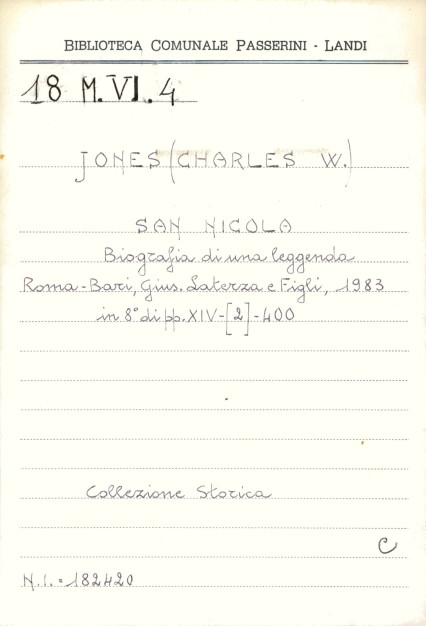 BIBLIOTECA COMUNALE PASSERINI - LANDI
18 M.VI.4
JONES (CHARLES W.)
SAN NICOLA
Biografia di una leggenda
Roma-Bari, Gius. Laterza e Figli, 1983
in 8° di pp. XIV-[2]-400
Collezione Storica
C
N.I. = 182420